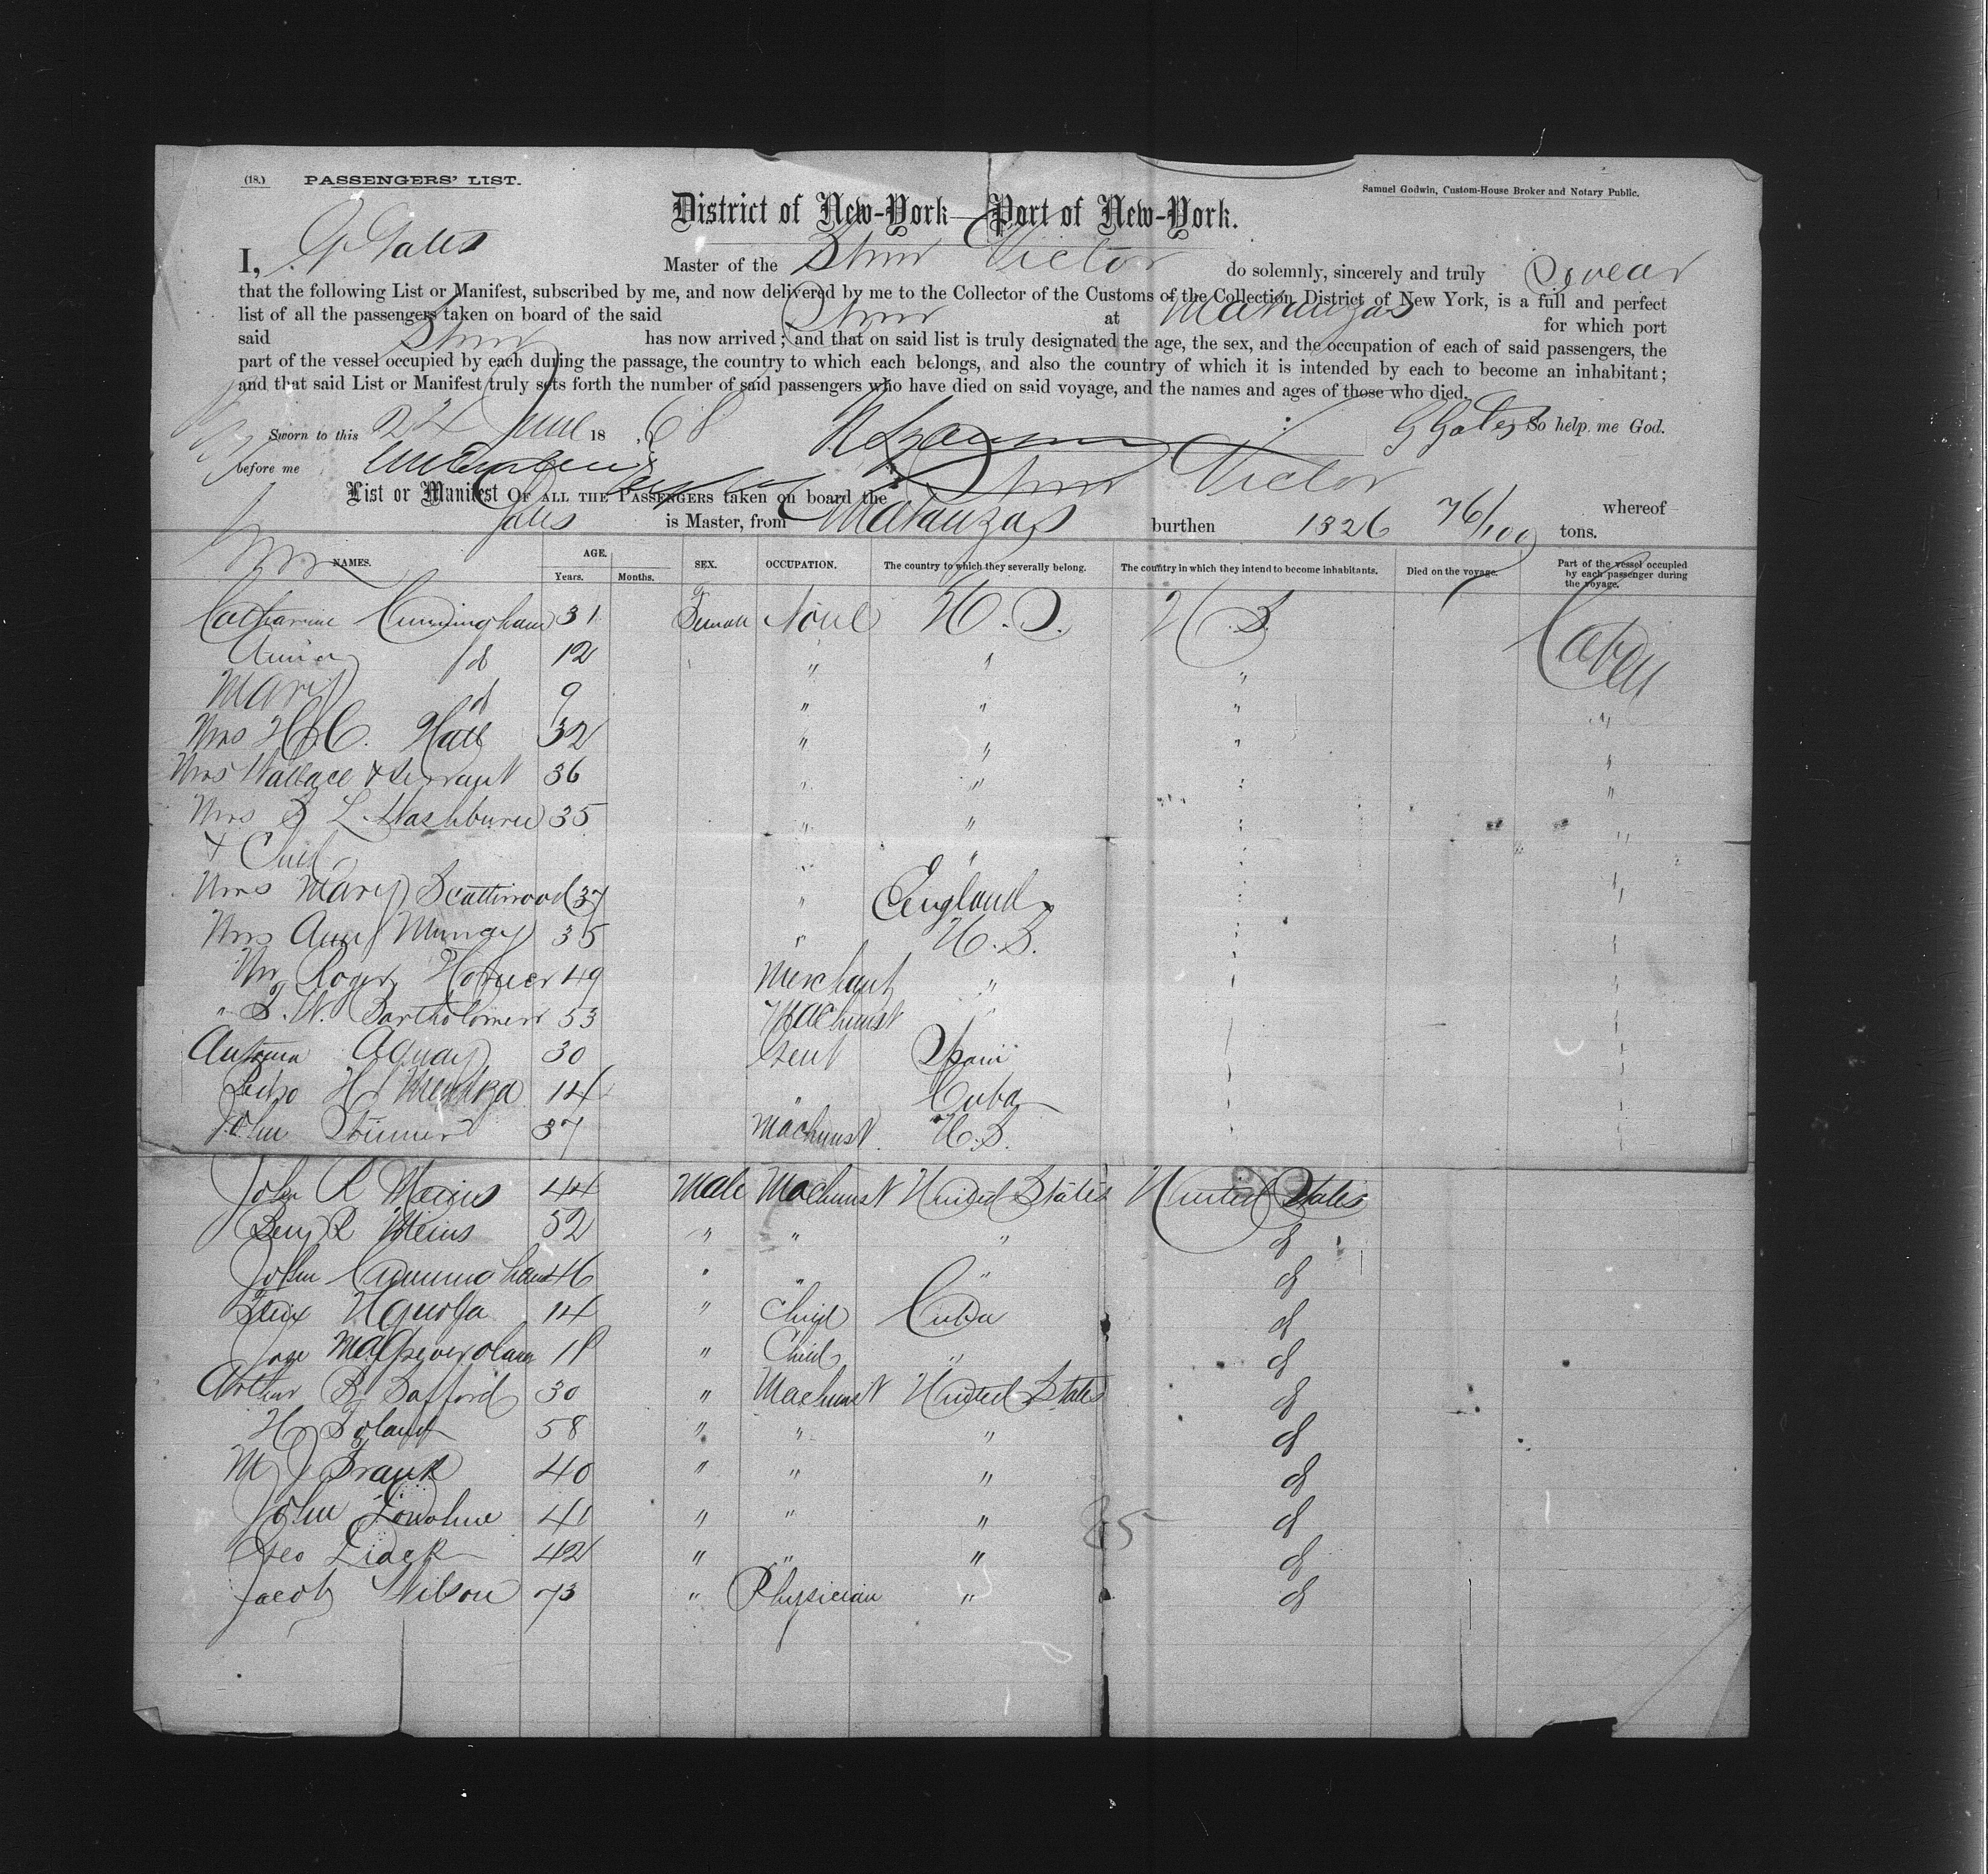 (18.) PASSENGERS' LIST.
Samuel Godwin, Custom-House Broker and Notary Public.
District of New-York—Port of New-York.
I, G Gates Master of the Stmr Victor do solemnly, sincerely and truly Swear
that the following List or Manifest, subscribed by me, and now delivered by me to the Collector of the Customs of the Collection District of New York, is a full and perfect
list of all the passengers taken on board of the said Stmr at Matanzas for which port
said Stmr has now arrived; and that on said list is truly designated the age, the sex, and the occupation of each of said passengers, the
part of the vessel occupied by each during the passage, the country to which each belongs, and also the country of which it is intended by each to become an inhabitant;
and that said List or Manifest truly sets forth the number of said passengers who have died on said voyage, and the names and ages of those who died.
Sworn to this 24 June 18 68 G Gates So help me God.
before me
List or Manifest OF ALL THE PASSENGERS taken on board the Stmr Victor whereof
Gates is Master, from Matanzas burthen 1326 76/100 tons.
NAMES. AGE. Years. Months. SEX. OCCUPATION. The country to which they severally belong. The country in which they intend to become inhabitants. Died on the voyage. Part of the vessel occupied by each passenger during the voyage.
Catharine Cunningham 31 Female None U.S. U.S. Cabin
Annie d 12 " " "
Mary d 9 " " " "
Mrs H. C. Hall 32 " " " "
Mrs Wallace & Servant 36 " " " "
Mrs S L Washburn 35 " " " "
& Child " " " "
Mrs Mary Scattirwood 37 " England " "
Mrs Ann Murray 35 " U.S. " "
Mr Roger Horner 49 Merchant " " "
" S. W. Bartholomew 53 Machinist " " "
Antonia Aguay 30 Gent Spain " "
Pedro H Mendza 14 " Cuba " "
John 37 Machinist U.S. " "
John R Meins 44 Male Machinist United States United States
Benj R Meins 52 " " " d
John Cunningham 46 " " " d
Felix 14 " Child Cuba d
Jose 18 " Child " d
Arthur B Safford 30 " Machinist United States d
H Toland 58 " " " d
M J Frank 40 " " " d
John Donohue 41 " " " d
85
Geo 42 " " " d
Jacob Wilson 73 " Physician " d